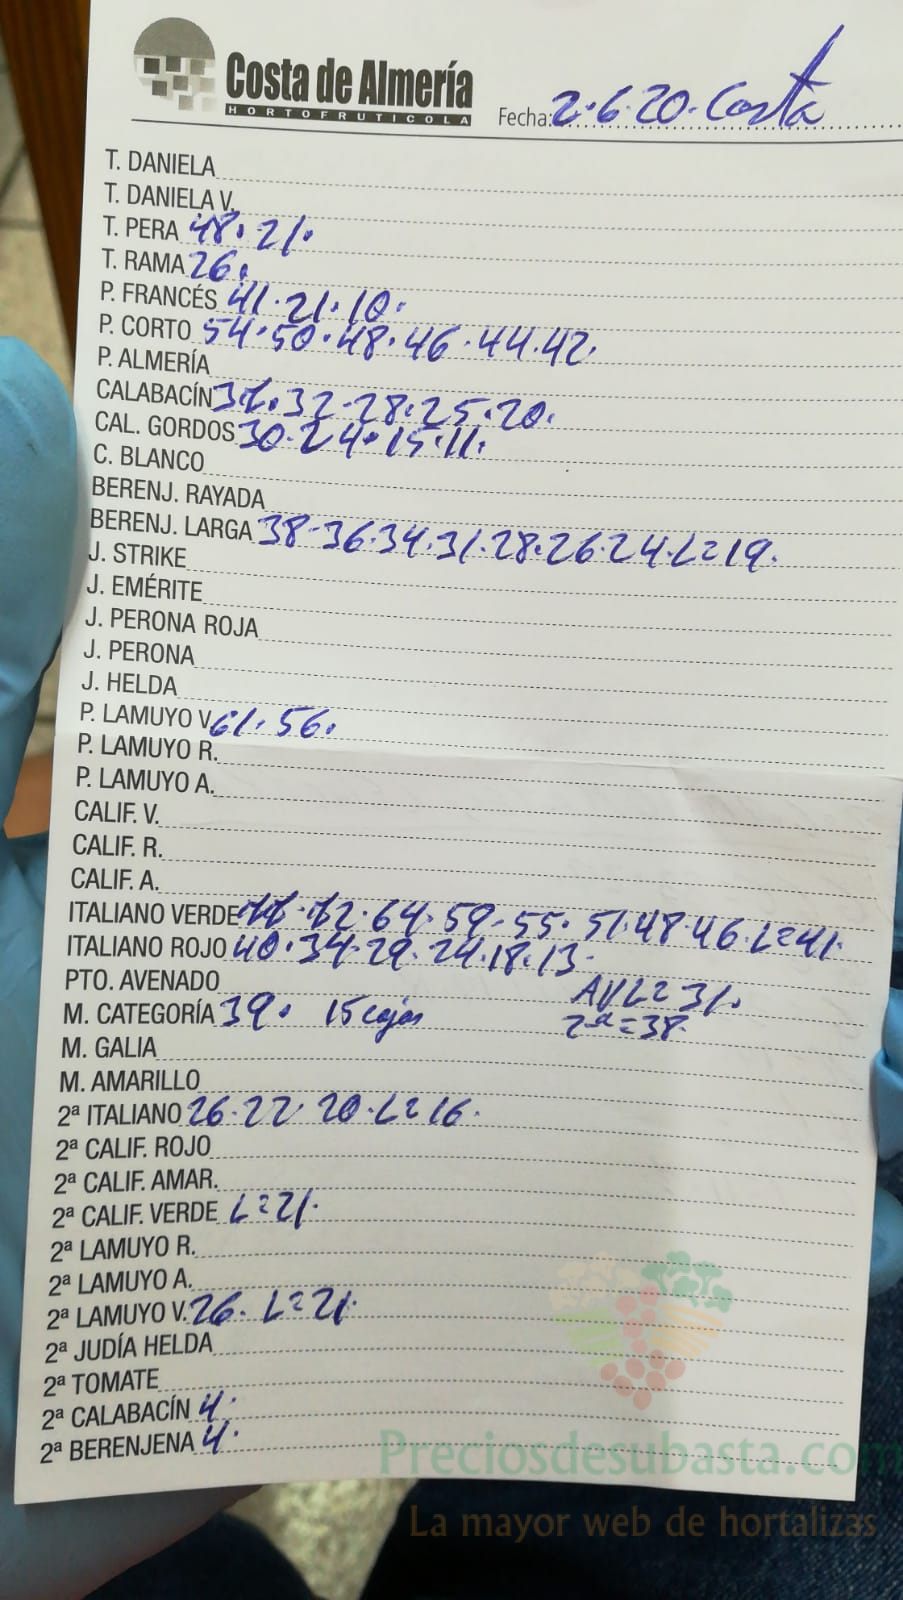 Costa de Almería
HORTOFRUTICOLA
Fecha: 2.6.20. Costa
T. DANIELA
T. DANIELA V.
T. PERA 48. 21.
T. RAMA 26.
P. FRANCÉS 41. 21. 10.
P. CORTO 54. 50. 48. 46. 44. 42.
P. ALMERÍA
CALABACÍN 32. 28. 25. 20.
CAL. GORDOS 30. 24. 15. 11.
C. BLANCO
BERENJ. RAYADA
BERENJ. LARGA 38. 36. 34. 31. 28. 26. 24. L=19.
J. STRIKE
J. EMÉRITE
J. PERONA ROJA
J. PERONA
J. HELDA
P. LAMUYO V. 61. 56.
P. LAMUYO R.
P. LAMUYO A.
CALIF. V.
CALIF. R.
CALIF. A.
ITALIANO VERDE 64. 59. 55. 51. 48. 46. L=41.
ITALIANO ROJO 40. 34. 29. 24. 18. 13.
PTO. AVENADO AVL=31.
M. CATEGORÍA 39. 15 cajas 2ª=38.
M. GALIA
M. AMARILLO
2ª ITALIANO 26. 22 20. L=16.
2ª CALIF. ROJO
2ª CALIF. AMAR.
2ª CALIF. VERDE L=21.
2ª LAMUYO R.
2ª LAMUYO A.
2ª LAMUYO V. 26. L=21.
2ª JUDÍA HELDA
2ª TOMATE
2ª CALABACÍN 4.
2ª BERENJENA 4.
Preciosdesubasta.com
La mayor web de hortalizas